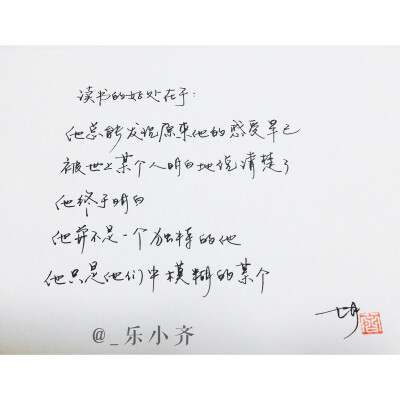 读书的好处在于：
他总能发现原来他的感受早已
被世上某个人明白地说清楚了
他终于明白
他并不是一个独特的他
他只是他们中模糊的某个
@_乐小齐